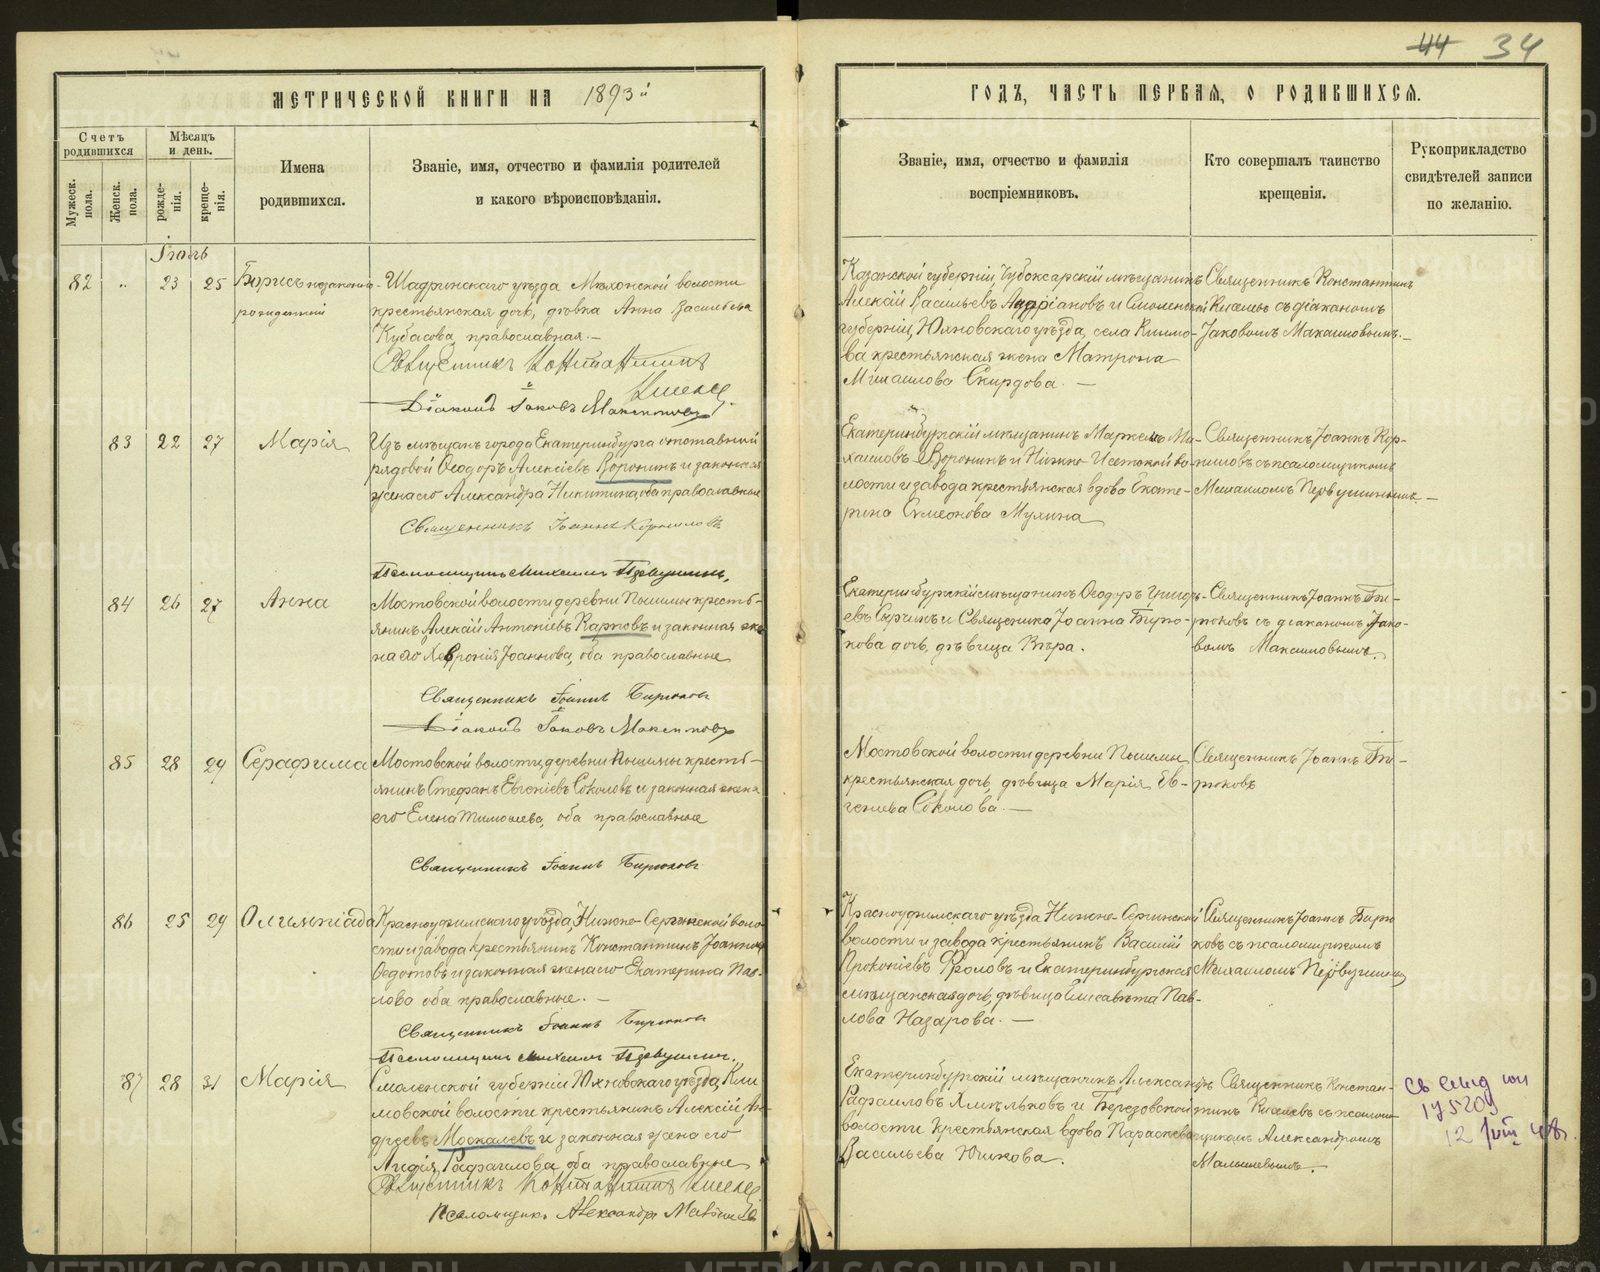 44 34
МЕТРИЧЕСКОЙ КНИГИ НА 1893й
ГОДЪ, ЧАСТЬ ПЕРВАЯ, О РОДИВШИХСЯ.
Счетъ родившихся
Мужеск. пола.
Женск. пола.
Мѣсяцъ и день.
рожде-нія.
креще-нія.
Имена
родившихся.
Званіе, имя, отчество и фамилія родителей
и какого вѣроисповѣданія.
Званіе, имя, отчество и фамилія
воспріемниковъ.
Кто совершалъ таинство
крещенія.
Рукоприкладство
свидѣтелей записи
по желанію.
Іюль
82 23 25 Борисъ незаконно
рожденный
Шадринскаго уѣзда Мехонской волости
крестьянская дочь, дѣвка Анна Васильева
Кубасова, православная.—
Священникъ Константинъ
Киселев
Діаконъ Іаковъ Максимовъ
Казанской губерніи, Чебоксарскій мѣщанинъ
Алексій Васильевъ Андріановъ и Смоленской
губерніи, Юхновскаго уѣзда, села Климо-
ва крестьянская жена Матрона
Михаилова Скирдова.—
Священникъ Константинъ
Киселевъ съ діакономъ
Іаковомъ Максимовымъ.—
83 22 27 Марія
Изъ мѣщанъ города Екатеринбурга отставной
рядовой Ѳеодоръ Алексіевъ Воронинъ и законная
жена его Александра Никитина, оба православные
Священникъ Іоаннъ Корниловъ
Псаломщикъ Михаилъ Первушинъ.
Екатеринбургскій мѣщанинъ Маркелъ Ми-
хаиловъ Воронинъ и Нижне-Исетской во-
лости и завода крестьянская вдова Екате-
рина Симеонова Мухина
Священникъ Іоаннъ Кор-
ниловъ съ псаломщикомъ
Михаиломъ Первушинымъ—
84 26 27 Анна
Мостовской волости деревни Пышмы кресть-
янинъ Алексій Антоніевъ Карповъ и законная же-
на его Хеврония Іоаннова, оба православные
Священникъ Іоаннъ Бирюковъ
Діаконъ Іаковъ Максимовъ
Екатеринбургскій мѣщанинъ Ѳеодоръ Григорь-
евъ Сырчинъ и Священника Іоанна Бирю-
кова дочь, дѣвица Вѣра.
Священникъ Іоаннъ Би-
рюковъ съ діакономъ Іако-
вомъ Максимовымъ.
85 28 29 Серафима
Мостовской волости, деревни Пышмы кресть-
янинъ Стефанъ Евгеніевъ Соколовъ и законная жена
его Елена Тимоѳеева, оба православные
Священникъ Іоаннъ Бирюковъ
Мостовской волости деревни Пышмы
крестьянская дочь, дѣвица Марія Ев-
геньева Соколова.—
Священникъ Іоаннъ Би-
рюковъ
86 25 29 Олимпіада
Красноуфимскаго уѣзда, Нижне-Сергинской воло-
сти и завода крестьянинъ Константинъ Іоанновъ
Ѳедотовъ и законная жена его Екатерина Пав-
лова оба православные.—
Священникъ Іоаннъ Бирюковъ
Псаломщикъ Михаилъ Первушинъ.
Красноуфимскаго уѣзда Нижне-Сергинской
волости и завода крестьянинъ Василій
Прокопіевъ Фроловъ и Екатеринбургская
мѣщанская дочь, дѣвица Елисавета Пав-
лова Назарова.—
Священникъ Іоаннъ Бирю
ковъ съ псаломщикомъ
Михаиломъ Первушинымъ
87 28 31 Марія
Смоленской губерніи Юхновскаго уѣзда, Кли
мовской волости крестьянинъ Алексій Ан-
дреевъ Москалевъ и законная жена его
Лидія Рафаилова, оба православные
Священникъ Константинъ Киселев
Псаломщикъ Александръ
Екатеринбургскій мѣщанинъ Александръ
Рафаиловъ Хмѣльковъ и Березовской
волости крестьянская вдова Параскева
Васильева Юшкова.
Священникъ Констан-
тинъ Киселевъ съ псалом-
щикомъ Александромъ
Малышевымъ.—
175209
METRIKI.GASO-URAL.RU